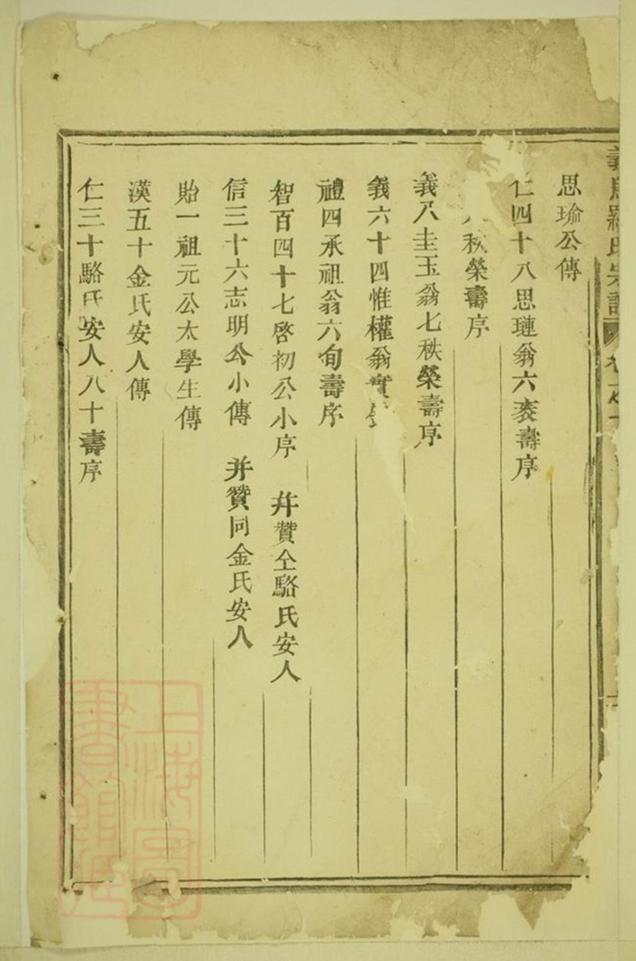 思瑜公傳
仁四十八思璉翁六袠壽序
秩榮壽序
義八圭玉翁七秩榮壽序
義六十四惟權翁實
禮四承祖翁六旬壽序
智百四十七啓初公小序 并贊仝駱氏安人
信三十六志明公小傳 并贊同金氏安人
貽一祖元公太學生傳
漢五十金氏安人傳
仁三十駱氏安人八十壽序
上海圖書館藏